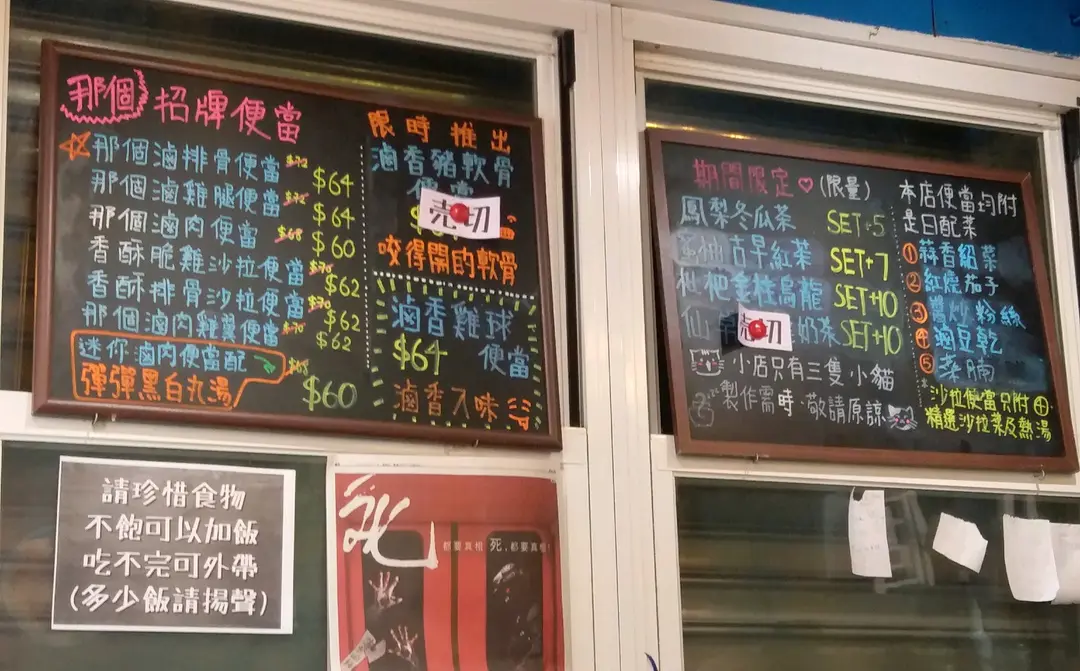 那個 招牌便當
那個滷排骨便當 $72 $64
那個滷雞腿便當 $64
那個滷肉便當 $68 $60
香酥脆雞沙拉便當 $70 $62
香酥排骨沙拉便當 $70 $62
那個滷肉雞翼便當 $70 $62
迷你滷肉便當配 $68
彈彈黑白丸湯 $60
限時推出
滷香豬軟骨
便當
売切
咬得開的軟骨
滷香雞球
$64 便當
滷香入味
期間限定♡(限量)
鳳梨冬瓜茶 SET+5
古早紅茶 SET+7
枇杷 桂烏龍 SET+10
仙 売切 奶茶 SET+10
小店只有三隻小貓
製作需時 敬請原諒
本店便當均附
是日配菜
①蒜香紹菜
②紅燒茄子
③醬炒粉絲
④滷豆乾
⑤素腩
*沙拉便當只附④
精選沙拉菜及熱湯
請珍惜食物
不飽可以加飯
吃不完可外帶
(多少飯請揚聲)
死
都要真相 死,都要真相!